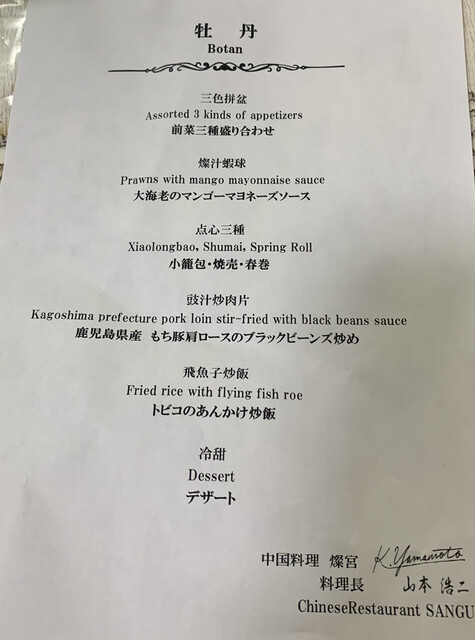 牡 丹
Botan
三色拼盆
Assorted 3 kinds of appetizers
前菜三種盛り合わせ
燦汁蝦球
Prawns with mango mayonnaise sauce
大海老のマンゴーマヨネーズソース
点心三種
Xiaolongbao, Shumai, Spring Roll
小籠包・焼売・春巻
豉汁炒肉片
Kagoshima prefecture pork loin stir-fried with black beans sauce
鹿児島県産 もち豚肩ロースのブラックビーンズ炒め
飛魚子炒飯
Fried rice with flying fish roe
トビコのあんかけ炒飯
冷甜
Dessert
デザート
中国料理 燦宮 K.Yamamoto
料理長 山本 浩二
ChineseRestaurant SANGU